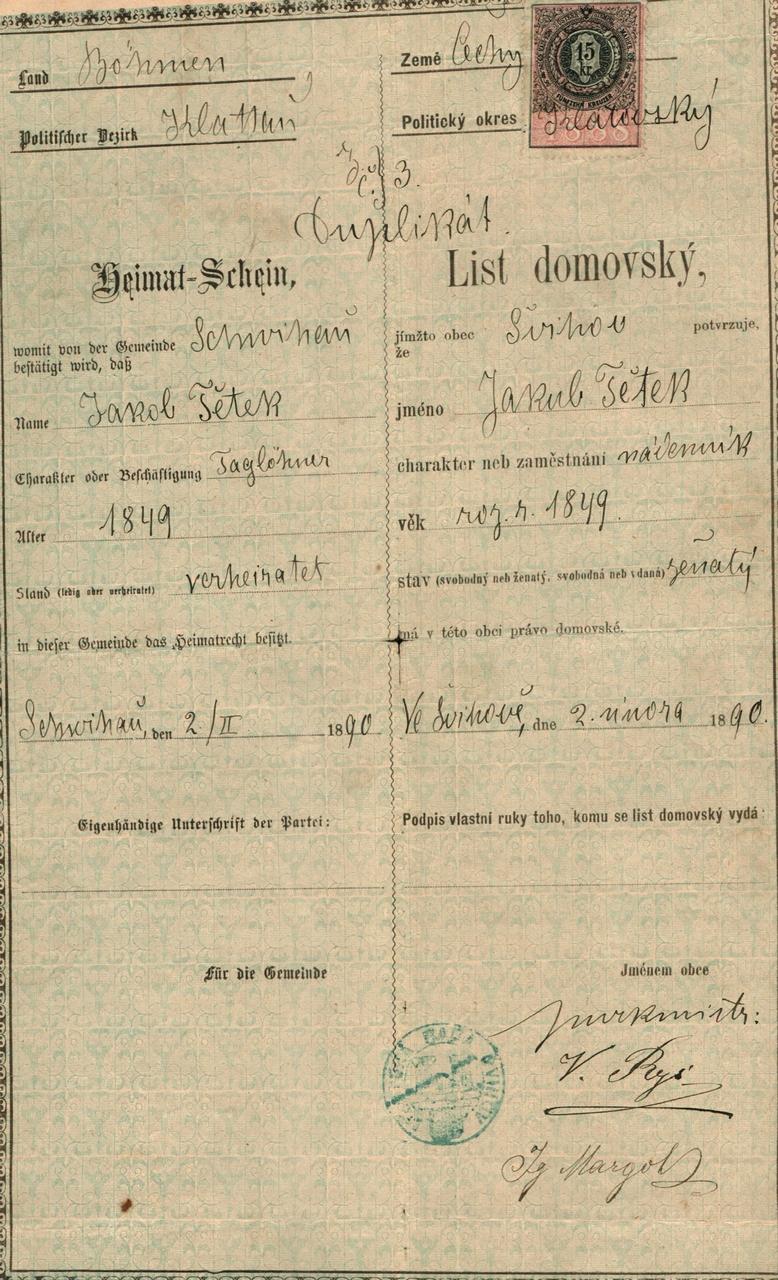 Land Böhmen
Politischer Bezirk Klattau
Země Čechy
Politický okres Klatovský
15
kr.
1888
Z.
č. 3.
Duplikát.
Heimat-Schein,
womit von der Gemeinde Schwihau
bestätigt wird, daß
Name Jakob Tětek
Charakter oder Beschäftigung Taglöhner
Alter 1849
Stand (ledig oder verheiratet) verheiratet
in dieser Gemeinde das Heimatrecht besitzt.
Schwihau, den 2/II 1890
Eigenhändige Unterschrift der Partei:
Für die Gemeinde
List domovský,
jímžto obec Švihov potvrzuje,
že
jméno Jakub Tětek
charakter neb zaměstnání nádenník
věk roz. r. 1849.
stav (svobodný neb ženatý, svobodná neb vdaná) ženatý
má v této obci právo domovské.
Ve Švihově, dne 2. února 1890.
Podpis vlastní ruky toho, komu se list domovský vydá:
Jménem obce
purkmistr:
V. Rys
Ig Margol